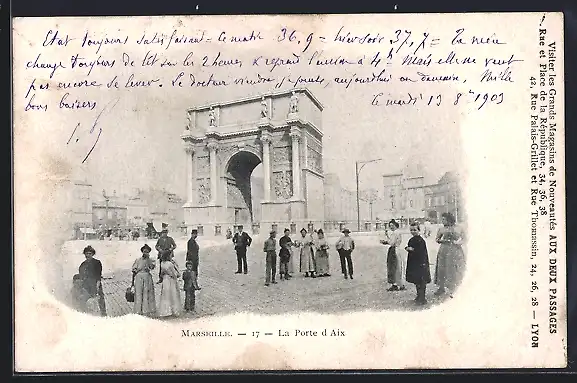 Etat toujours satisfaisant = ce matin 36,9 = hier soir 37,7 = La
change toujours de lit sur les 2 heures & reprend l'autre à 4 h. Mais elle veut
pas encore se lever. Le docteur viendra, je pense, aujourd'hui ou demain, Mille
bons baisers
Ce mardi 13 8bre 1903
MARSEILLE. — 17 — La Porte d'Aix
Visiter les Grands Magasins de Nouveautés AUX DEUX PASSAGES
Rue et Place de la République, 34, 36, 38
42, Rue Palais-Grillet et Rue Thomassin, 24, 26, 28 — LYON